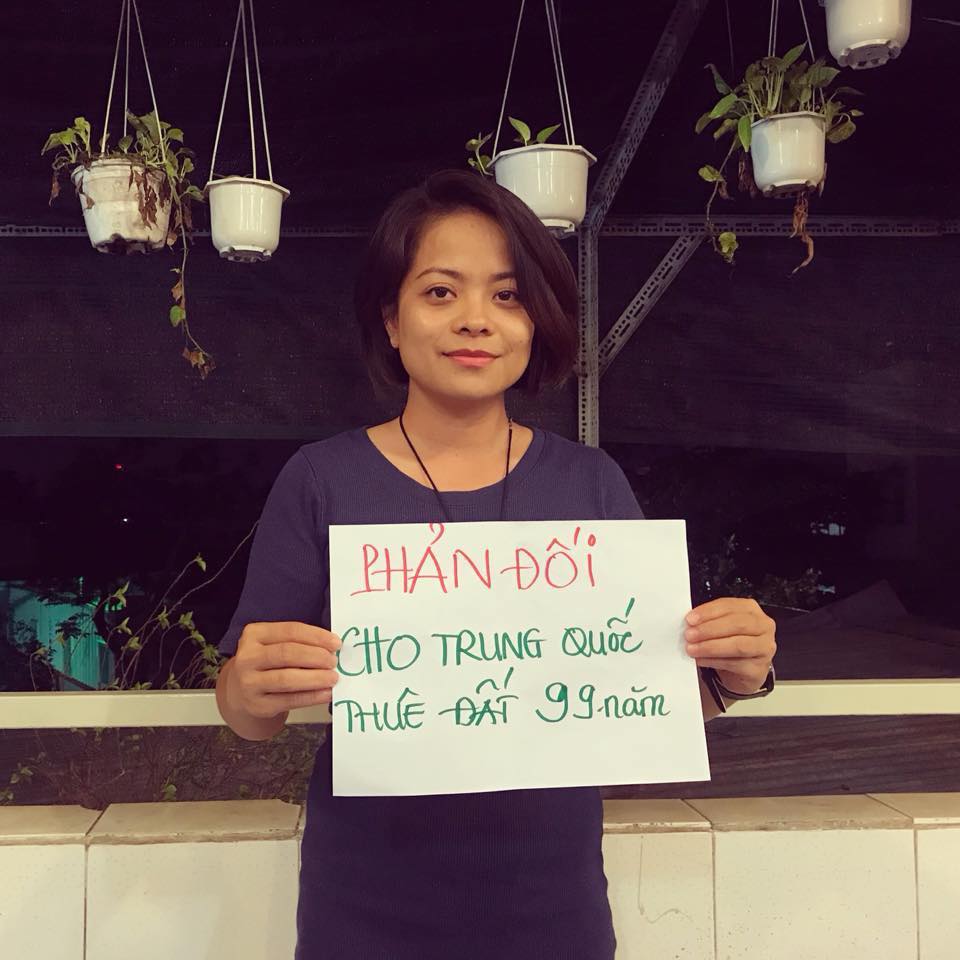 PHẢN ĐỐI
CHO TRUNG QUỐC
THUÊ ĐẤT 99 năm